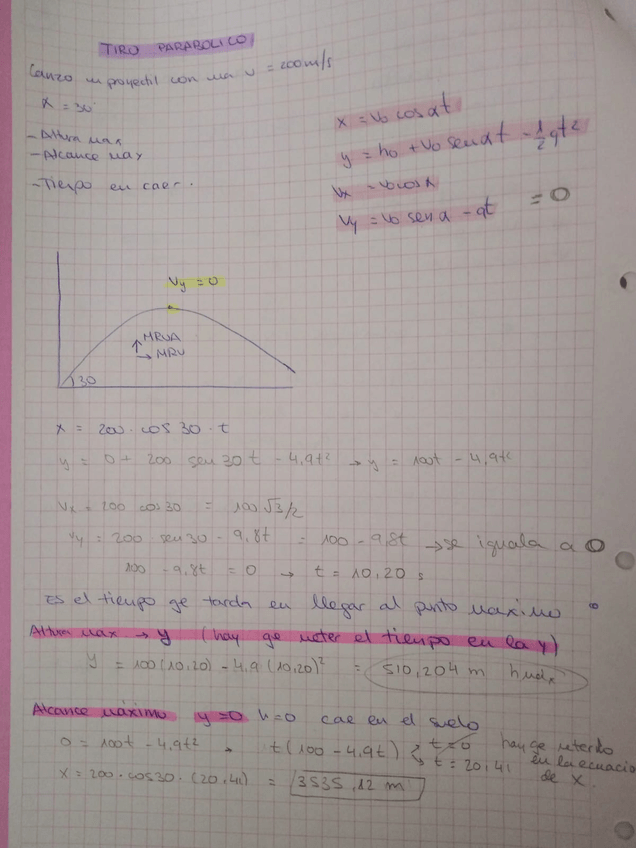 TIRO PARABOLICO
Lanzo un proyectil con una v = 200m/s
α = 30°
- Altura max
- Alcance max
- Tiempo en caer.
x = v0 cos αt
y = h0 + v0 sen αt - 1/2 gt²
Vx = v0 cos α
Vy = v0 sen α - gt = 0
Vy = 0
↑ MRUA
→ MRU
30
x = 200 · cos 30 · t
y = 0 + 200 sen 30 t - 4,9t² → y = 100t - 4,9t²
Vx = 200 cos 30 = 100 √3/2
Vy = 200 · sen 30 - 9,8t = 100 - 9,8t → se iguala a 0
100 - 9,8t = 0 → t = 10,20 s
Es el tiempo qe tarda en llegar al punto maximo
Altura max → y (hay qe meter el tiempo en la y)
y = 100(10,20) - 4,9(10,20)² = 510,204 m
Alcance máximo y=0 h=0 cae en el suelo
0 = 100t - 4,9t² . t(100 - 4,9t) t=0 hay qe meterlo
t = 20,41 en la ecuacio
x = 200 · cos 30 · (20,41) = 3535,12 m de x.